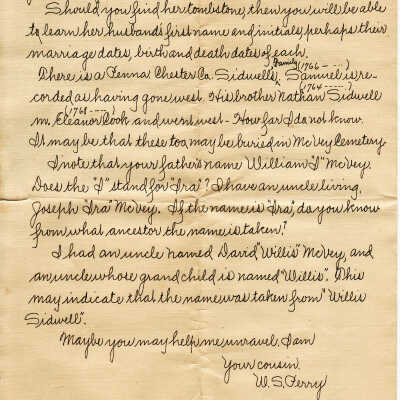 Should you find her tombstone, then you will be able
to learn her husband's first name and initials, perhaps their
marriage dates, birth and death dates of each.
Family (1766 - ----)
There is a Penna. Chester Co. Sidwells, Samuel is re-
(1764 ----)
corded as having gone west. His brother Nathan Sidwell
(1768 ----
m. Eleanor Cook and went west - How far I do not know.
It may be that these too, may be buried in McVey Cemetery.
I note that your father's name William "I" McVey.
Does the "I" stand for "Ira"? I have an uncle living,
Joseph "Ira" McVey. If the name is "Ira", do you know
from what ancestor the name is taken?
I had an uncle named David "Willis" McVey, and
an uncle whose grand child is named "Willis". This
may indicate that the name was taken from "Willis
Sidwell".
Maybe you may help me unravel. I am
Your cousin.
W. S. Perry